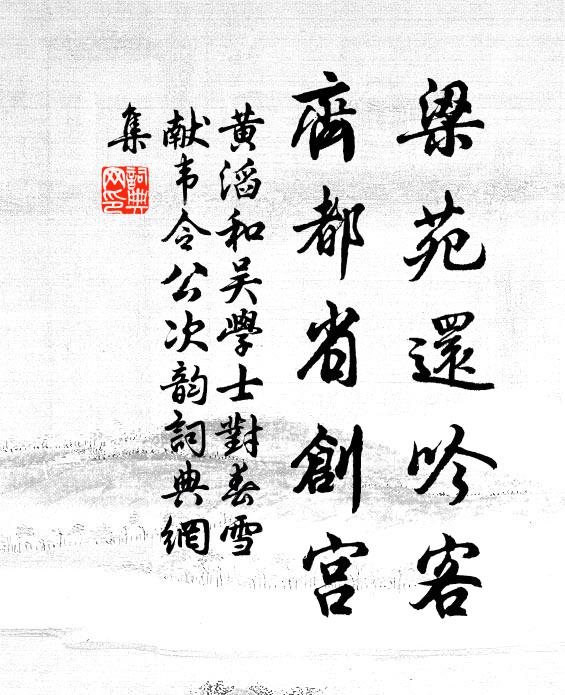 梁苑还吟客
齊都省創宫
黄滔和吴學士對春雪
献韦令公次韵詞典網
集
詞典網印